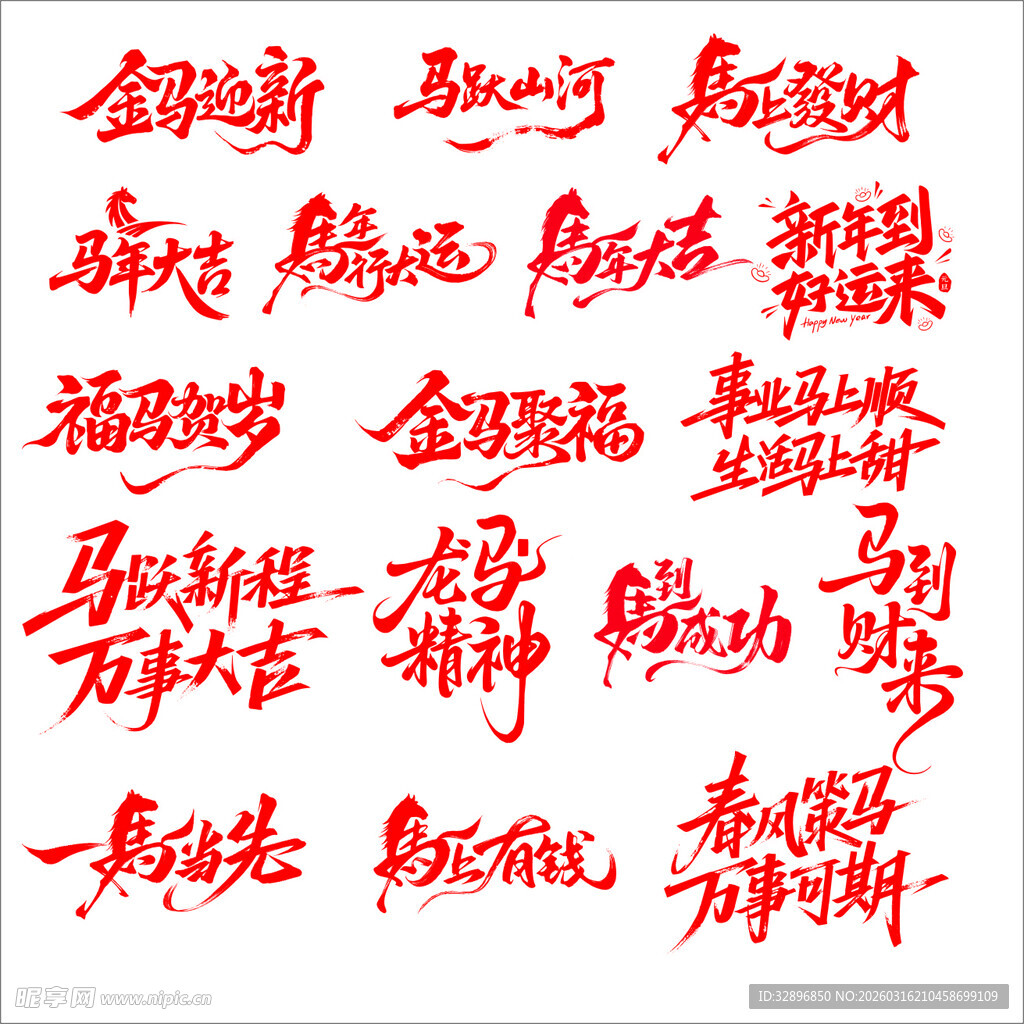 金马迎新
马跃山河
馬上發财
马年大吉
馬年
行大运
馬年大吉
新年到
好运来
元旦
Happy New Year
福马贺岁
金马聚福
事业马上顺
生活马上甜
马跃新程
万事大吉
龙马
精神
馬到
成功
马到
财来
一馬当先
馬上有钱
春风策马
万事可期
昵享网 www.nipic.cn
ID:32896850 NO:20260316210458699109